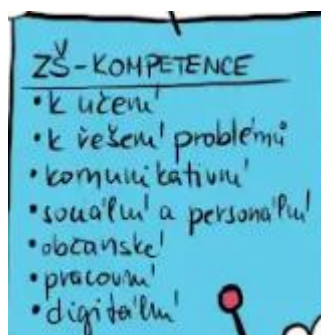 ZŠ-KOMPETENCE
• k učení
• k řešení problémů
• komunikativní
• sociální a personální
• občanské
• pracovní
• digitální